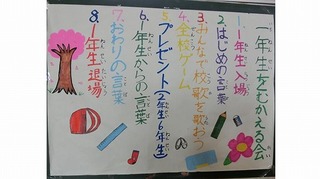 一年生をむかえる会
1.1年生入場
2.はじめの言葉
3.みんなで校歌を歌おう
4.全校ゲーム
5.プレゼント(2年生6年生)
6.1年生からの言葉
7.おわりの言葉
8.1年生退場